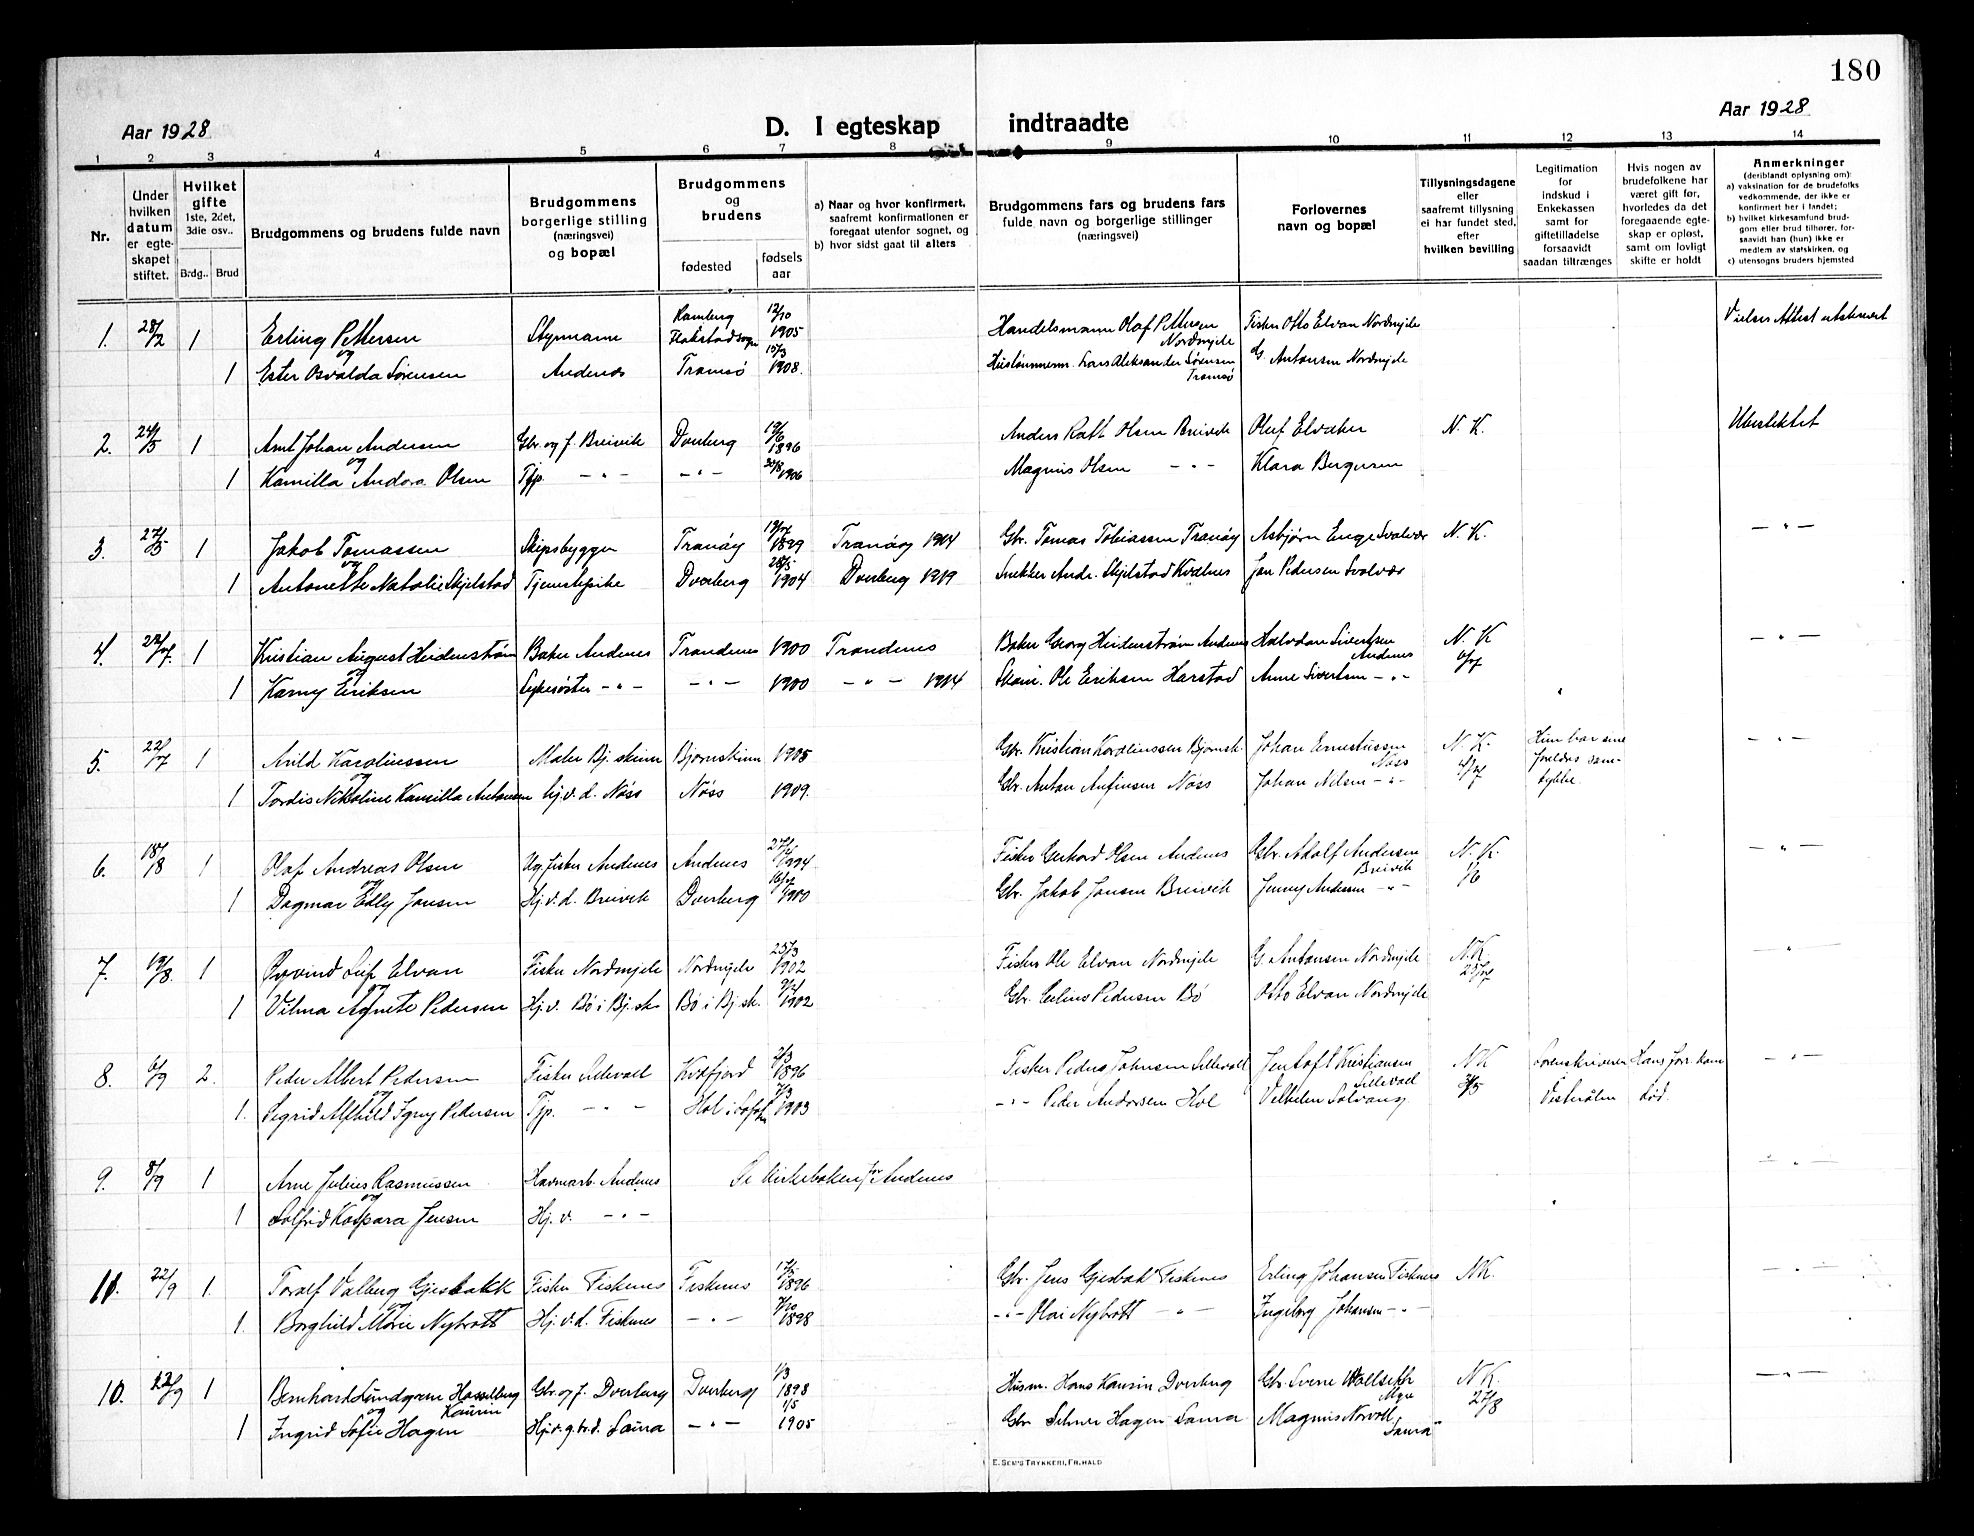 180
Aar 1928
D. I egteskap indtraadte
Aar 1928
1 2 3 4 5 6 7 8 9 10 11 12 13 14
Nr.
Under hvilken datum er egteskapet stiftet.
Hvilket gifte
1ste, 2det, 3die osv..
Brdg.. Brud
Brudgommens og brudens fulde navn
Brudgommens borgerlige stilling (næringsvei) og bopæl
Brudgommens og brudens
fødested
fødselsaar
a) Naar og hvor konfirmert, saafremt konfirmationen er foregaat utenfor sognet, og
b) hvor sidst gaat til alters
Brudgommens fars og brudens fars fulde navn og borgerlige stillinger (næringsvei)
Forlovernes navn og bopæl
Tillysningsdagene eller saafremt tillysning ei har fundet sted, efter hvilken bevilling
Legitimation for indskud i Enkekassen samt for giftetilladelse forsaavidt saadan tiltrænges
Hvis nogen av brudefolkene har været gift før, hvorledes da det foregaaende egteskap er opløst, samt om lovligt skifte er holdt
Anmerkninger
(deriblandt oplysning om):
a) vaksination for de brudefolks vedkommende, der ikke er konfirmert her i landet;
b) hvilket kirkesamfund brudgom eller brud tilhører, forsaavidt han (hun) ikke er medlem av statskirken, og
c) utensogns bruders hjemsted
1. 28/2 1 Erling Pettersen Styrmann Ramberg Flakstad sogn 12/10 1905 Handelsmann Olaf Pettersen Nordmjele Fisker Otto Elvan Nordmjele Vielses Attest utskrevet
og
1 Ester Osvalda Sørensen Andenes Tromsø 15/3 1908. Lars Aleksander Sørensen Tromsø G. Antonsen Nordmjele
2. 24/5 1 Arnt Johan Andersen Gbr. og f. Breivik Dverberg 19/6 1896 Anders Olsen Breivik Oluf Elvaker N. K.
og
1 Kamilla Andora Olsen Tjp. — " — — " — 1906 Magnus Olsen — " — Klara Bergersen
3. 27/5 1 Jakob Tomassen Skipsbygger Tranøy 1899 Tranøy 1914 Gbr. Tomas Tobiassen Tranøy Asbjørn Enge Svolvær N. K. — " —
og
1 Antonette Natalie Skjelstad Tjenestepike Dverberg 28/5 1904 Dverberg 1919 Snekker Andr. Skjelstad Kvalnes Jon Pedersen Svolvær
4. 22/7. 1 Kristian August Heidenstrøm Baker Andenes Trondenes 1900 Trondenes Baker Georg Heidenstrøm Andenes Halvdan Sivertsen Andenes N. K 6/7 — " —
og
1 Karny Eriksen Sykesøster — " — — " — 1900 — " — 1914 Ole Eriksen Harstad Anne Sivertsen — " —
5. 22/7 1 Arild Karolinssen Maler Bj.skinn Bjørnskinn 1905 Gbr. Kristian Karolinssen Bjørnsk. Johan Ernestussen Nøss N. K. 4/7 Hun har sine foreldres samtykke — " —
og
1 Tordis Nikoline Kamilla Antonsen hj.v.d. Nøss Nøss 1909. Gbr. Anton Anfinsen Nøss Johan Nilsen — " —
6. 18/8 1 Olaf Andreas Olsen Ug. fisker Andenes Andenes 1894 Fisker Gerhard Olsen Andenes Gbr. Adolf Andersen Breivik N. K. — " —
og
1 Dagmar Edly Jonsen Hj.v.d. Breivik Dverberg 16/7 1900 Gbr. Jakob Jonsen Breivik Jenny Andersen — " —
7. 19/8. 1 Øyvind Leif Elvan Fisker Nordmjele Nordmjele 23/3 1902 Fisker Ole Elvan Nordmjele G. Antonsen Nordmjele N.K. 23/7 — " —
og
1 Vilma Agnete Pedersen Hj.v. Bø i Bj.sk. Bø i Bj.sk. 1902 Gbr. Edins Pedersen Bø Otto Elvan Nordmjele
8. 6/9 2. Peder Albert Pedersen Fisker Sellevoll Kvæfjord 2/3 1896 Fisker Peder Johnsen Sellevoll Jentoft Kristiansen Sellevoll NK Sorenskriveren Vesterålen — " —
og
1. Sigrid Alfhild Igny Pedersen Tjp. — " — Hol i Lofoten 1903 — " — Peder Andersen Hol Vilhelm Solvang død.
9. 8/9 1 Arne Julius Rasmussen Havnarb. Andenes Se kirkeboken for Andenes — " —
og
1 Solfrid Kaspara Jensen Hj.v. — " —
11. 22/9 1. Toralf Valberg Gjesbakk Fisker Fiskenes Fiskenes 1896 Gbr. Jens Gjesbak Fiskenes Erling Johansen Fiskenes NK. — " —
og
1. Borghild Marie Nybrott Hj.v.d. Fiskenes — " — 7/10 1898 — " — Olai Nybrott — " — Ingeborg Johansen — " —
10. 22/9 1 Bernhard Lundgren Hasselberg Kaurin Gbr. og f. Dverberg Dverberg 1/3 1898 Husm. Hans Kaurin Dverberg Gbr. Sverre Myre NK. 27/8 — " —
og
1 Ingrid Sofie Hagen Hj.v.g.br.d. Saura — " — 1/5 1905 Gbr Selmer Hagen Saura Magnus Norvoll Saura
E. SEM'S TRYKKERI, FR.HALD